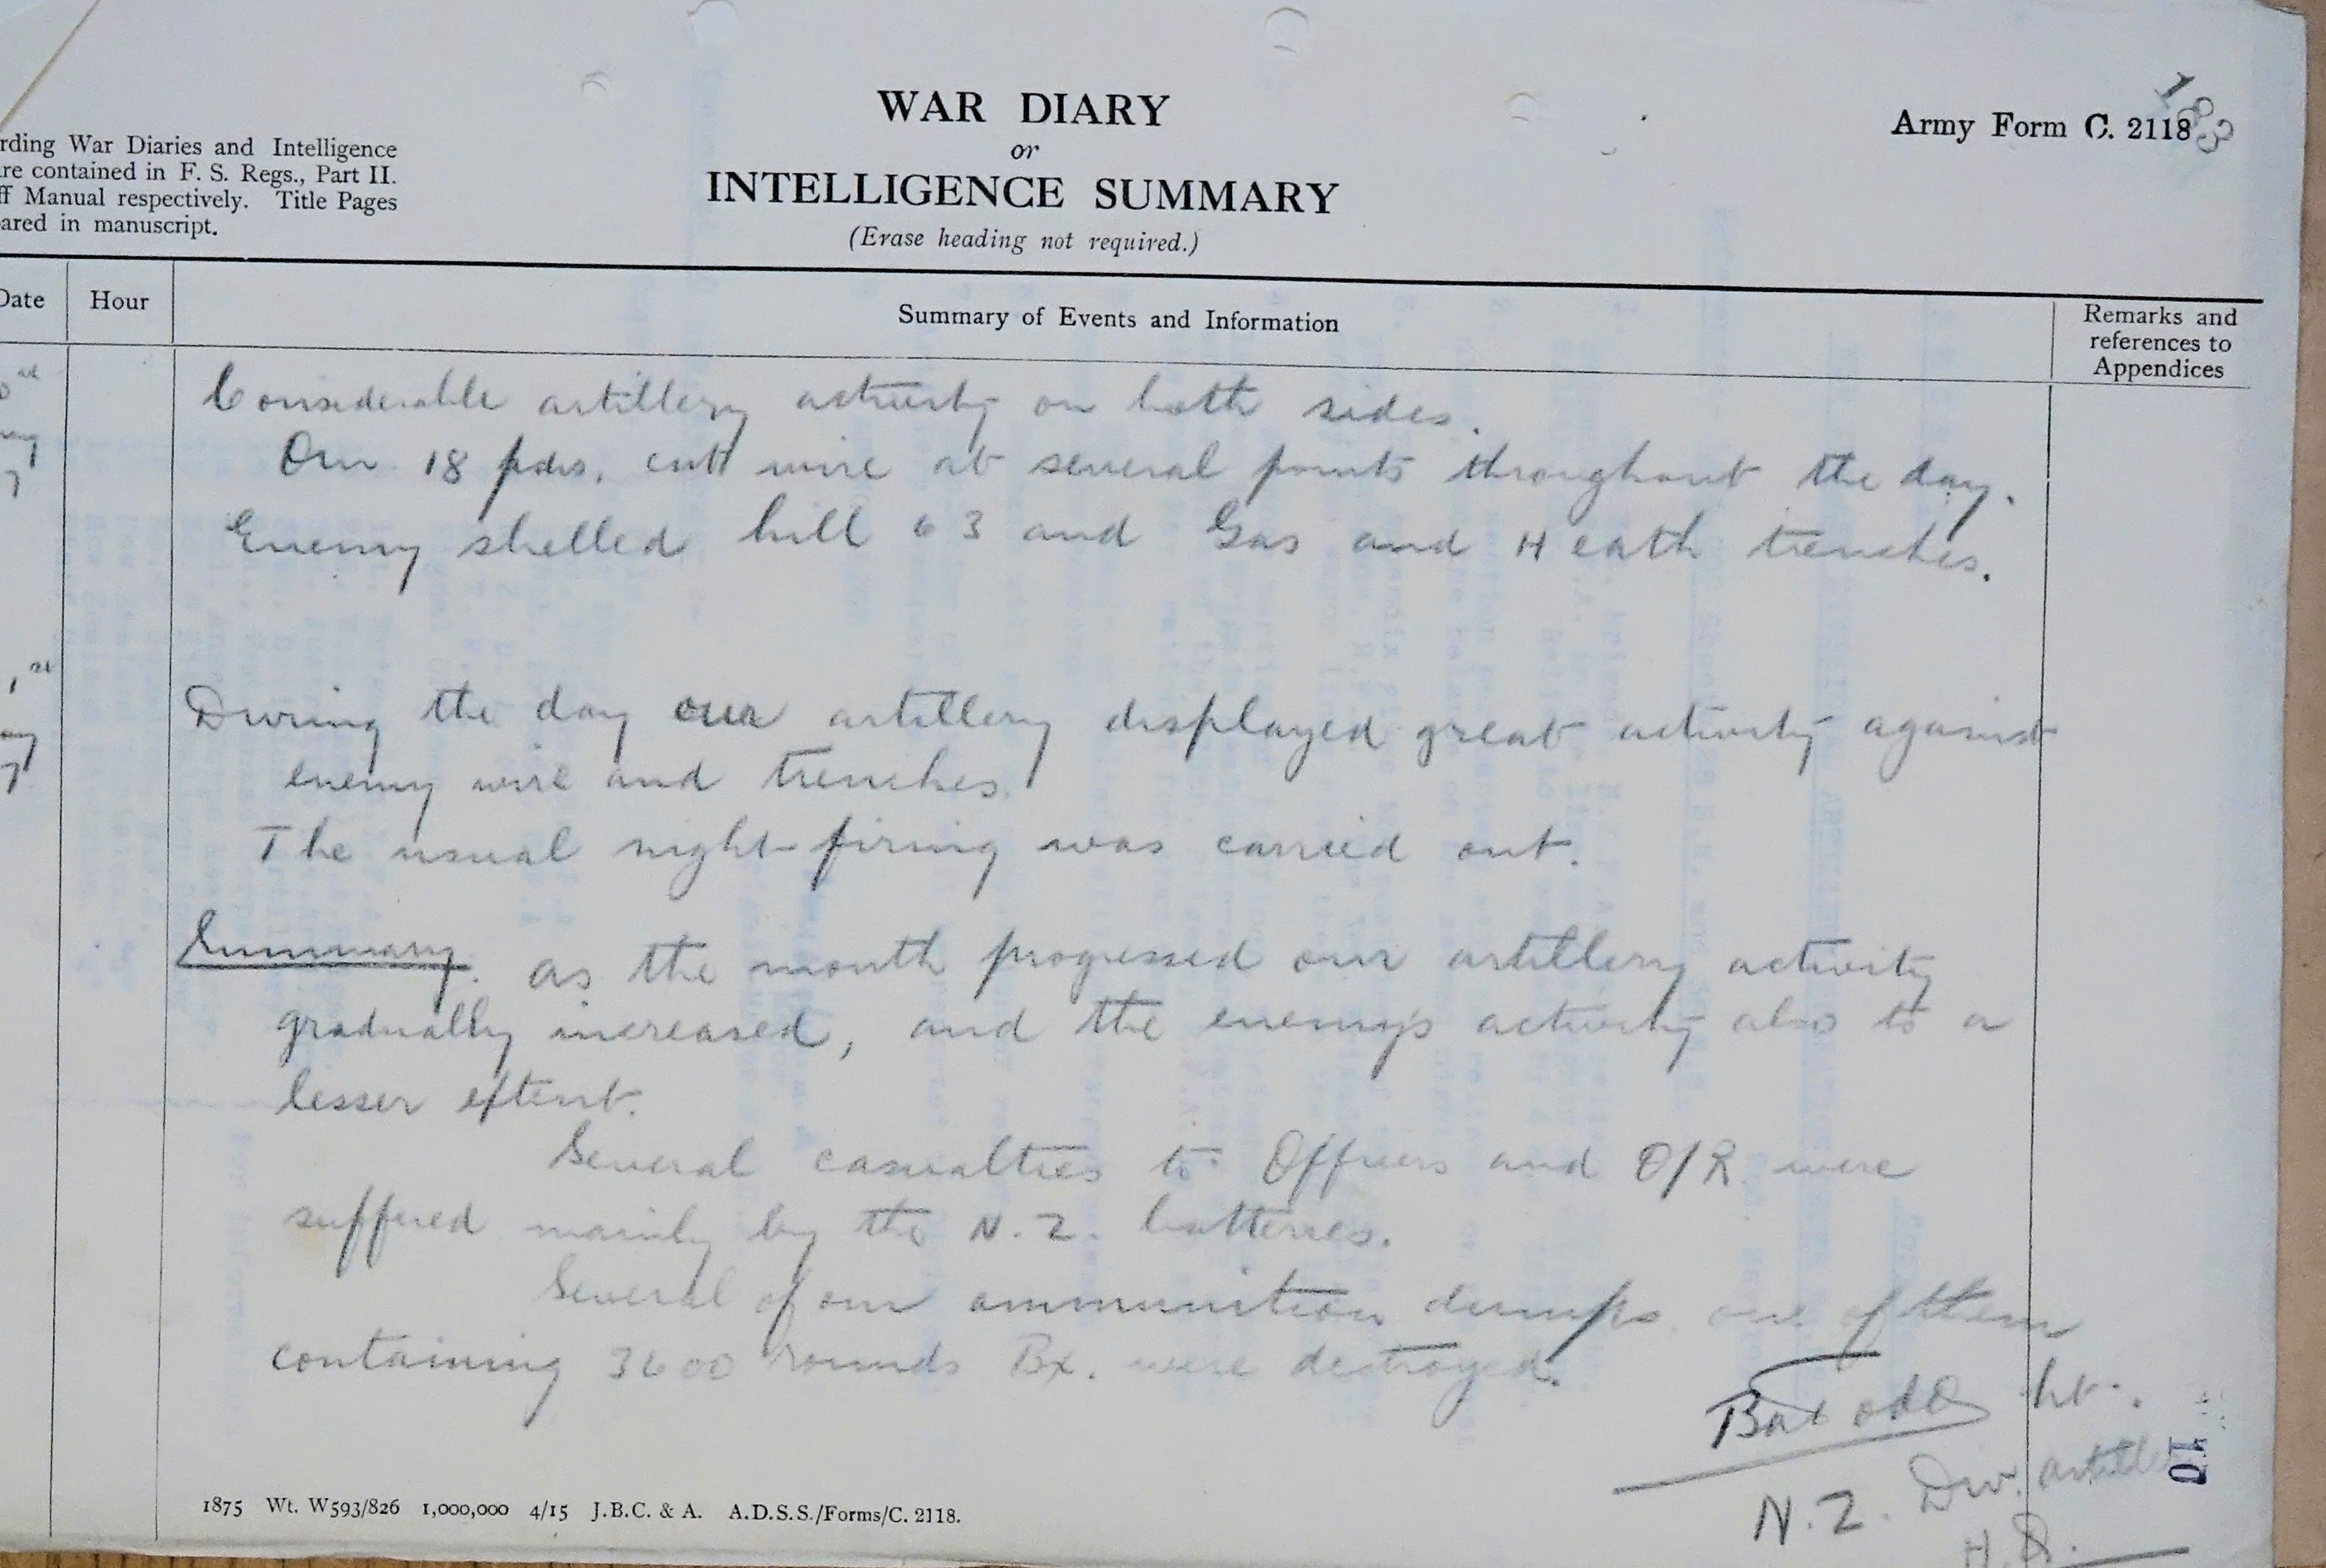 WAR DIARY
or
INTELLIGENCE SUMMARY
(Erase heading not required.)
Army Form C. 2118
183
rding War Diaries and Intelligence
re contained in F. S. Regs., Part II.
ff Manual respectively. Title Pages
ared in manuscript.
Date
Hour
Summary of Events and Information
Remarks and
references to
Appendices
Considerable artillery activity on both sides.
Our 18 pdrs. cut wire at several points throughout the day.
Enemy shelled hill 63 and Gas and Heath trenches.
During the day our artillery displayed great activity against
enemy wire and trenches.
The usual night firing was carried out.
Summary. as the month progressed our artillery activity
gradually increased, and the enemy's activity also to a
lesser extent.
Several casualties to Officers and O/R were
suffered mainly by the N.Z. batteries.
Several of our ammunition dumps one of them
containing 3600 rounds Bx. were destroyed.
N.Z. Div. artille
10
1875 Wt. W593/826 1,000,000 4/15 J.B.C. & A. A.D.S.S./Forms/C. 2118.